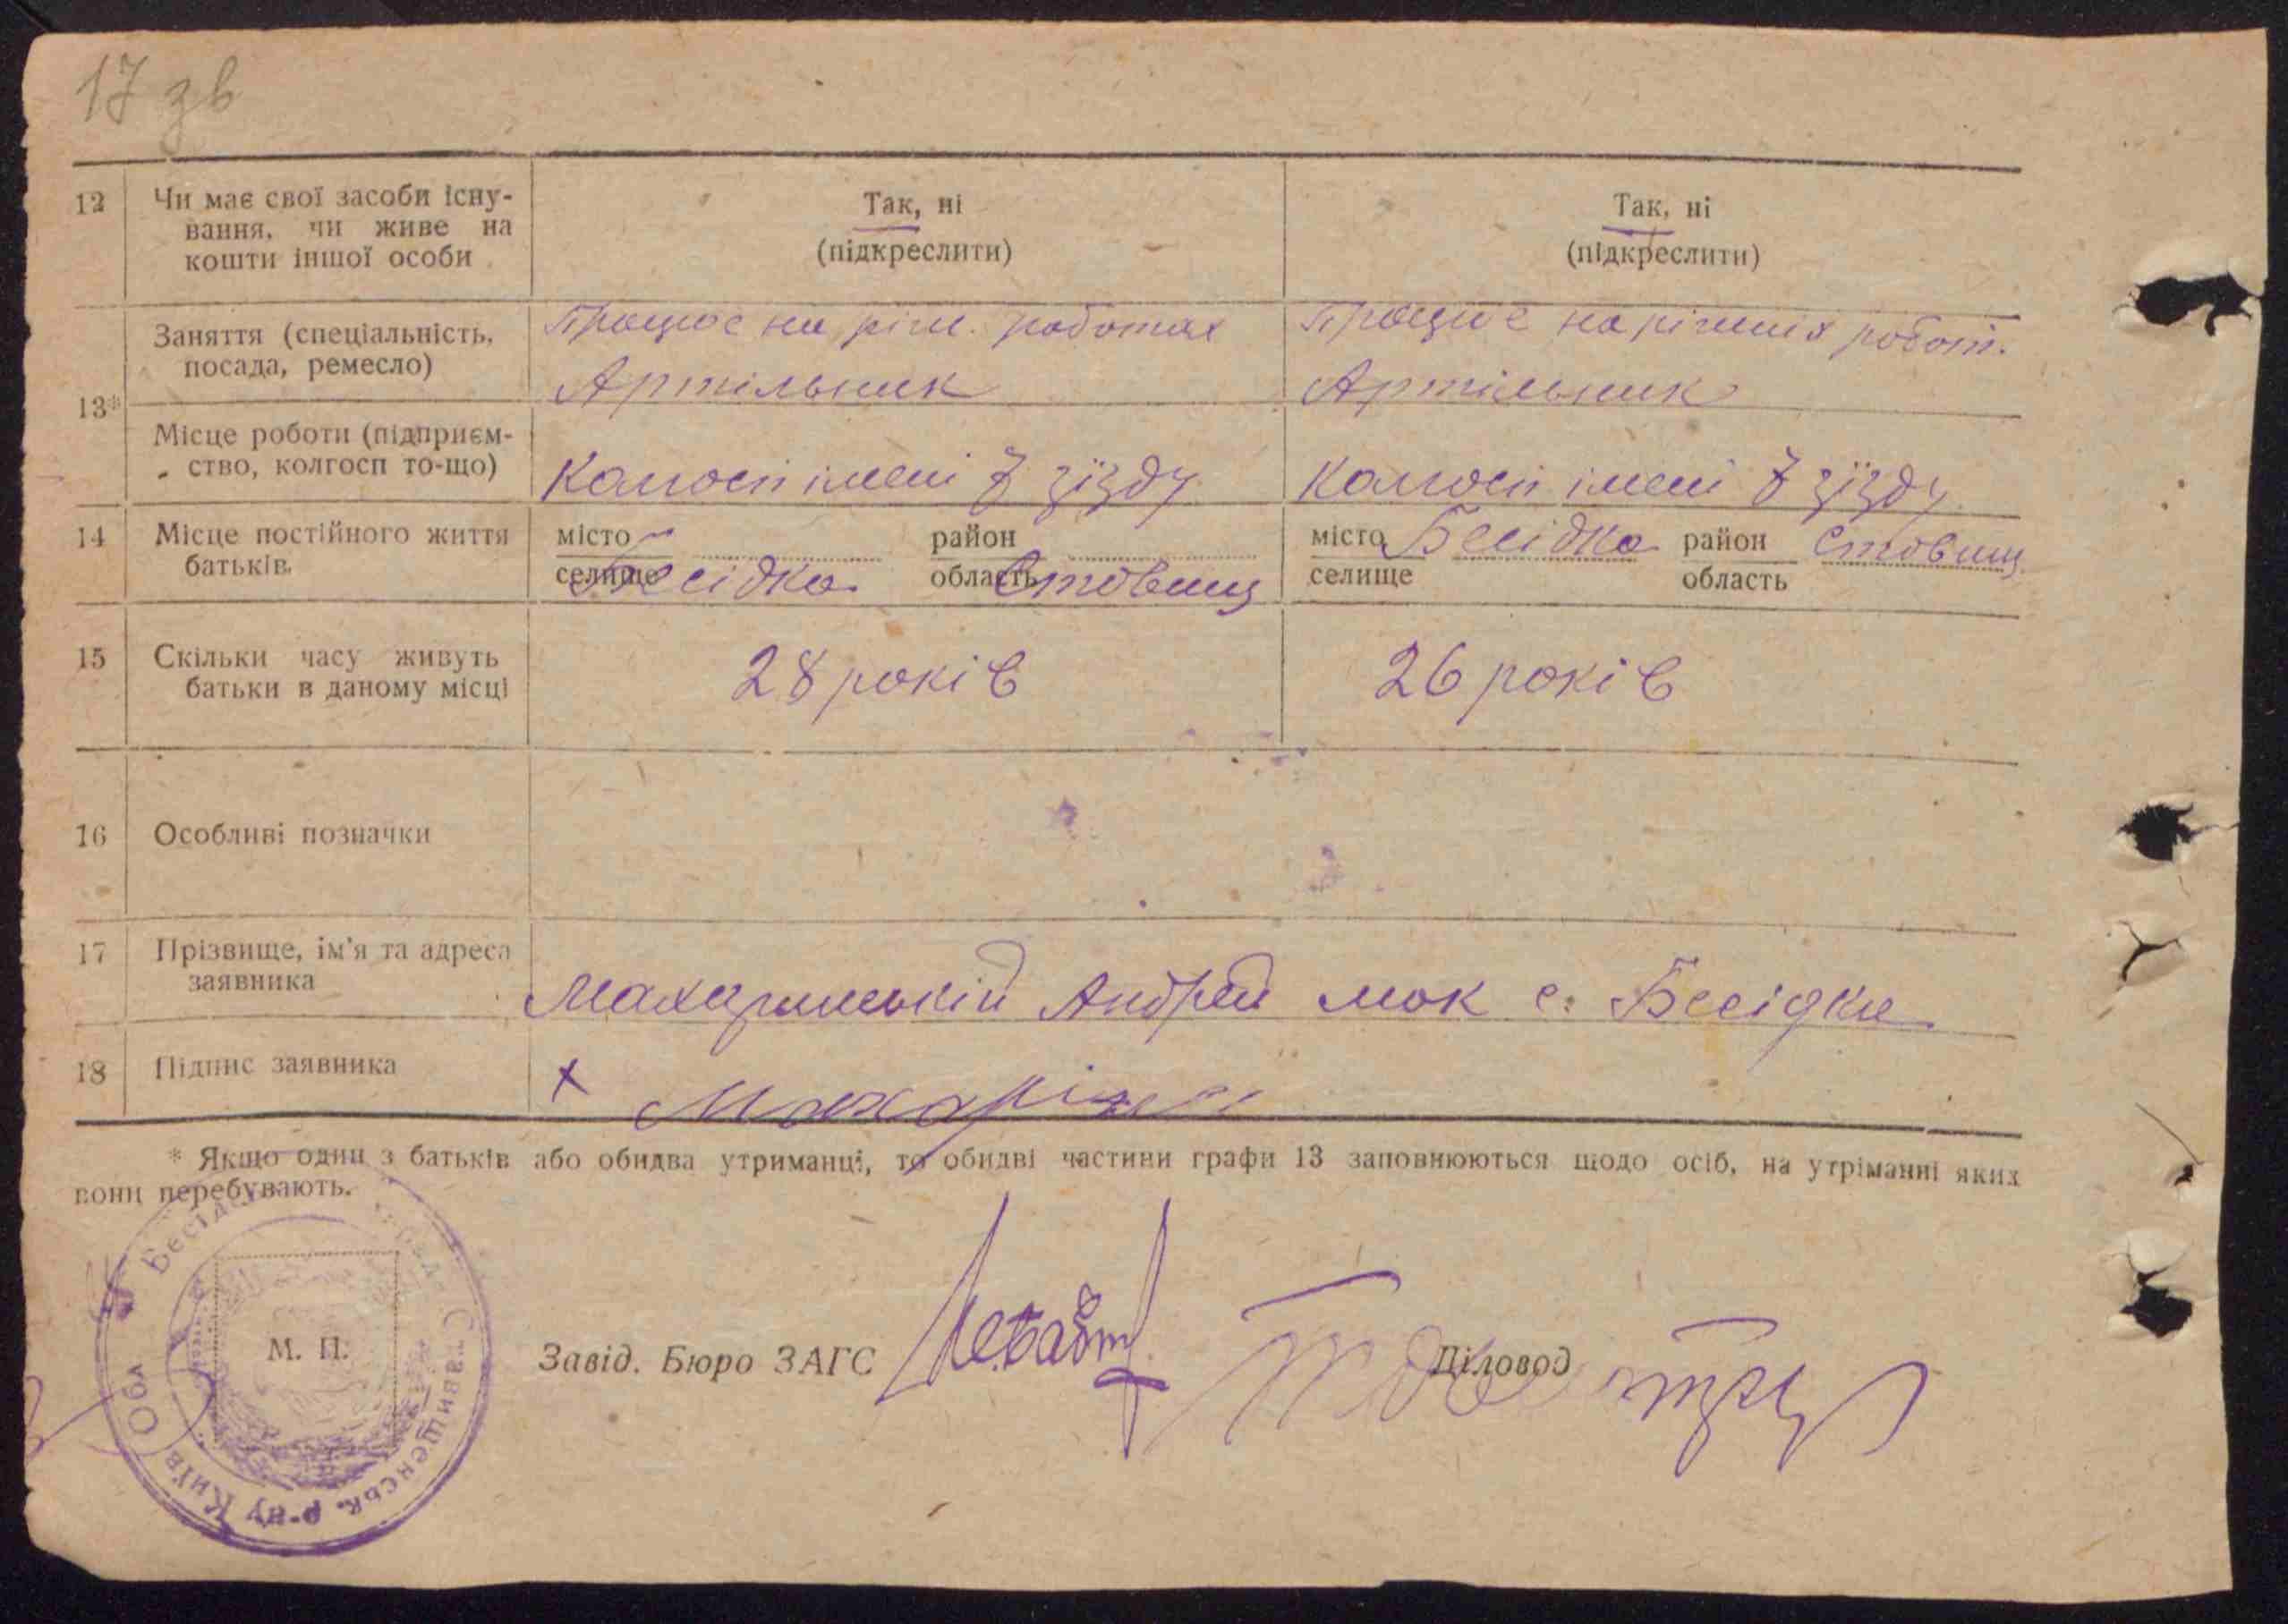 17 зв
12 Чи має свої засоби існу-
вання, чи живе на
кошти іншої особи
Так, ні
(підкреслити)
Так, ні
(підкреслити)
13*
Заняття (спеціальність,
посада, ремесло)
Працює на різн. роботах
Артільник
Працює на різних робот.
Артільник
Місце роботи (підприєм-
ство, колгосп то-що)
Колгосп імені 7 зїзду
Колгосп імені 7 зїзду
14 Місце постійного життя
батьків.
місто
селище Бесідка
район
область Ставищ
місто Бесідка
селище
район Ставищ.
область
15 Скільки часу живуть
батьки в даному місці
28 років
26 років
16 Особливі позначки
17 Прізвище, ім'я та адреса
заявника
Андрій с. Бесідка
18 Підпис заявника
х
* Якщо один з батьків або обидва утриманці, то обидві частини графи 13 заповнюються щодо осіб, на утріманні яких
вони перебувають.
М. П.
Ставищенськ. р-ну Київ Обл
Завід. Бюро ЗАГС
Діловод